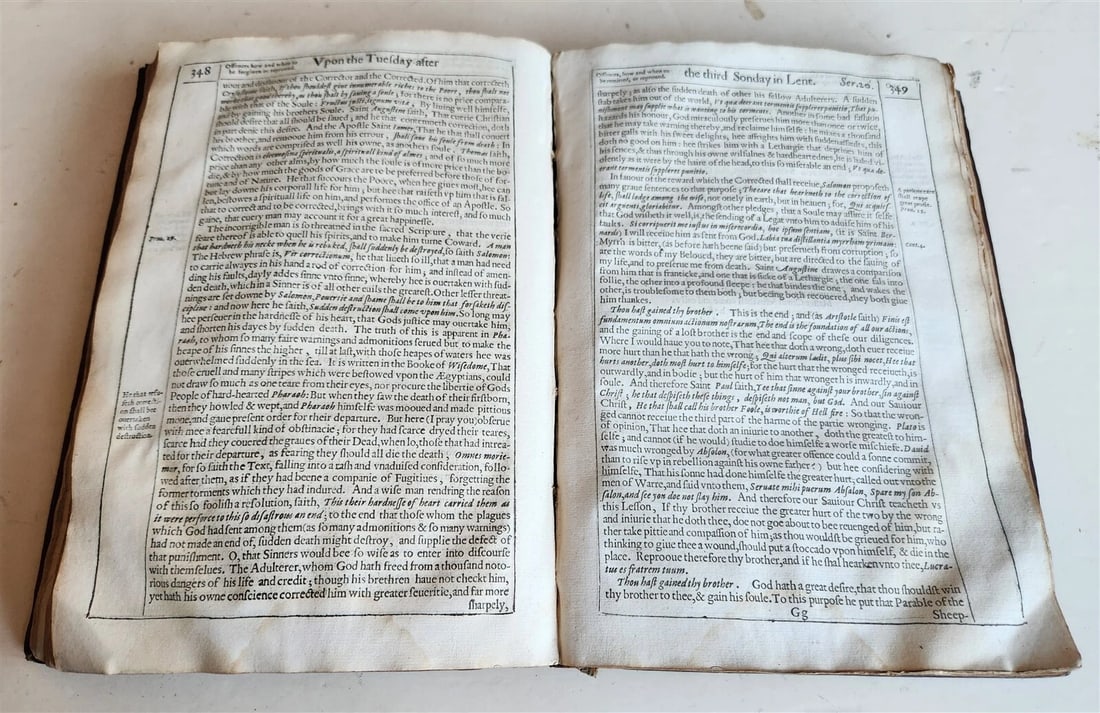 348
Offences, how and when to
be forgiven or reproved.
Vpon the Tuesday after
tious and desirous of the Corrector and the Corrected. Of him that correcteth,
thou shouldst giue innumerable riches to the Poore, thou shalt not
thou shalt by sauing a soule; for there is no price compara-
ble with that of the Soule: Fructus iusti, lignum vitæ, By liuing well himselfe,
and by gaining his brothers Soule. Saint Augustine saith, That euerie Christian
should desire that all should be saued; and he that contemneth correction, doth
in part denie this desire. And the Apostle Saint Iames, That he that shall conuert
his brother, and remooue him from his errour, shall saue his soule from death: In
which words are comprised as well his owne, as anothers soule. Thomas saith,
Correction is eleemosina spiritualis, a spirituall kind of almes; and of so much more
price than any other almes, by how much the soule is of more price than the bo-
die, & by how much the goods of Grace are to be preferred before those of for-
tune and of Nature. He that succours the Poore, when hee giues most, hee can
but lay downe his corporall life for him; but hee that raiseth vp him that is fal-
len, bestowes a spirituall life on him, and performes the office of an Apostle. So
that to correct and to be corrected, brings with it so much interest, and so much
gaine, that euery man may account it for a great happinesse.
The incorrigible man is so threatned in the sacred Scripture, that the verie
feare thereof is able to quell his spirits, and to make him turne Coward. A man
that hardneth his necke when he is rebuked, shall suddenly be destroyed, so saith Salomon:
Prou. 29.
The Hebrew phrase is, Vir correctionum, he that liueth so ill, that a man had need
to carrie alwayes in his hand a rod of correction for him; and instead of amen-
ding his faults, dayly addes sinne vnto sinne, whereby hee is ouertaken with sud-
den death, which in a Sinner is of all other euils the greatest. Other lesser threat-
nings are set downe by Salomon, Pouertie and shame shall be to him that forsaketh dis-
cipline: and now here he saith, Sudden destruction shall come vpon him. So long may
hee perseuer in the hardnesse of his heart, that Gods justice may ouertake him,
and shorten his dayes by sudden death. The truth of this is apparent in Pha-
raoh, to whom so many faire warnings and admonitions serued but to make the
heape of his sinnes the higher, till at last, with those heapes of waters hee was
ouerwhelmed suddenly in the sea. It is written in the Booke of Wisedome, That
those cruell and many stripes which were bestowed vpon the Ægyptians, could
not draw so much as one teare from their eyes, nor procure the libertie of Gods
He that refu-
seth correcti-
on shall bee
ouertaken
with sudden
destruction.
People of hard-hearted Pharaoh: But when they saw the death of their firstborn,
then they howled & wept, and Pharaoh himselfe was mooued and made pittious
mone, and gaue present order for their departure. But here (I pray you) obserue
with mee a fearefull kind of obstinacie; for they had scarce dryed their teares,
scarce had they couered the graues of their Dead, when lo, those that had intrea-
ted for their departure, as fearing they should all die the death, Omnes morie-
mur, for so saith the Text, falling into a rash and vnaduised consideration, follo-
wed after them, as if they had beene a companie of Fugitiues, forgetting the
former torments which they had indured. And a wise man rending the reason
of this so foolish a resolution, saith, This their hardnesse of heart carried them as
it were perforce to this so disastrous an end; to the end that those whom the plagues
which God had sent among them (as so many admonitions & so many warnings)
had not made an end of, sudden death might destroy, and supplie the defect of
that punishment. O, that Sinners would bee so wise as to enter into discourse
with themselues. The Adulterer, whom God hath freed from a thousand noto-
rious dangers of his life and credit; though his brethren haue not checkt him,
yet hath his owne conscience corrected him with greater seueritie, and far more
sharpely,
Offences, how and when to
be remitted, or reproved.
the third Sonday in Lent.
Ser.26.
349
sharpely; as also the sudden death of other his fellow Adulterers. A sudden
stab takes him out of the world, Vt qua deerant tormentis suppleret punitio, That pu-
nishment may supplie what is wanting to his torments. Another in some bad fashion
hazards his honour, God miraculously preserues him more than once or twice,
that he may take warning thereby, and reclaime himselfe: he mixes a thousand
bitter galls with his sweet delights, hee affrights him with sudden assaults, this
doth no good on him: hee strikes him with a Lethargie that depriues him of
his sences, & thus through his owne wilfulnes & hardheartednes, he is haled vi-
olently as it were by the haire of the head, to this so miserable an end, Vt qua de-
erant tormentis suppleret punitio.
In fauour of the reward which the Corrected shall receiue, Salomon proposeth
many graue sentences to that purpose; The eare that hearkneth to the correction of
life, shall lodge among the wise, not onely in earth, but in heauen; for, Qui acquies-
cit arguenti, gloriabitur. Amongst other pledges, that a Soule may assure it selfe
that God wisheth it well, is, the sending of a Legat vnto him to aduise him of his
faults. Si corripuerit me iustus in misericordia, hoc ipsum sentiam, (it is Saint Ber-
nards) I will receiue him as sent from God. Labia tua distillantia myrrham primam;
Myrrh is bitter, (as before hath beene said) but preserueth from corruption; so
are the words of my Beloued, they are bitter, but are directed to the sauing of
my life, and to preserue me from death. Saint Augustine drawes a comparison
from him that is franticke, and one that is sicke of a Lethargie; the one falls into
follie, the other into a profound sleepe: he that bindes the one, and wakes the
other, is troublesome to them both; but being both recouered, they both giue
him thankes.
Thou hast gained thy brother. This is the end; and (as Aristotle saith) Finis est
fundamentum omnium actionum nostrarum, The end is the foundation of all our actions,
and the gaining of a lost brother is the end and scope of these our diligences.
Where I would haue you to note, That hee that doth a wrong, doth euer receiue
more hurt than he that hath the wrong; Qui alterum lædit, plus sibi nocet, Hee that
hurts another, doth most hurt to himselfe; for the hurt that the wronged receiueth, is
outwardly, and in bodie; but the hurt of him that wrongeth is inwardly, and in
soule. And therefore Saint Paul saith, Yee that sinne against your brother, sin against
Christ; he that despiseth these things, despiseth not man, but God. And our Sauiour
Christ, He that shall call his brother Foole, is worthie of Hell fire: So that the wron-
ged cannot receiue the third part of the harme of the partie wronging. Plato is
of opinion, That hee that doth an iniurie to another, doth the greatest to him-
selfe; and cannot (if he would) studie to doe himselfe a worse mischiefe. Dauid
was much wronged by Absalon, (for what greater offence could a sonne commit,
than to rise vp in rebellion against his owne father?) but hee considering with
himselfe, That his sonne had done himselfe the greater hurt, called out vnto the
men of Warre, and said vnto them, Seruate mihi puerum Absalon, Spare my son Ab-
salon, and see you doe not slay him. And therefore our Sauiour Christ teacheth vs
this Lesson, If thy brother receiue the greater hurt of the two by the wrong
and iniurie that he doth thee, doe not goe about to bee reuenged of him, but ra-
ther take pittie and compassion of him; as thou wouldst be grieued for him, who
thinking to giue thee a wound, should put a stoccado vpon himself, & die in the
place. Reprooue therefore thy brother, and if he shal hearken vnto thee, Lucra-
tus es fratrem tuum.
Thou hast gained thy brother. God hath a great desire, that thou shouldst win
thy brother to thee, & gain his soule. To this purpose he put that Parable of the
Gg
Sheep-
Prou. 15.
Cant.